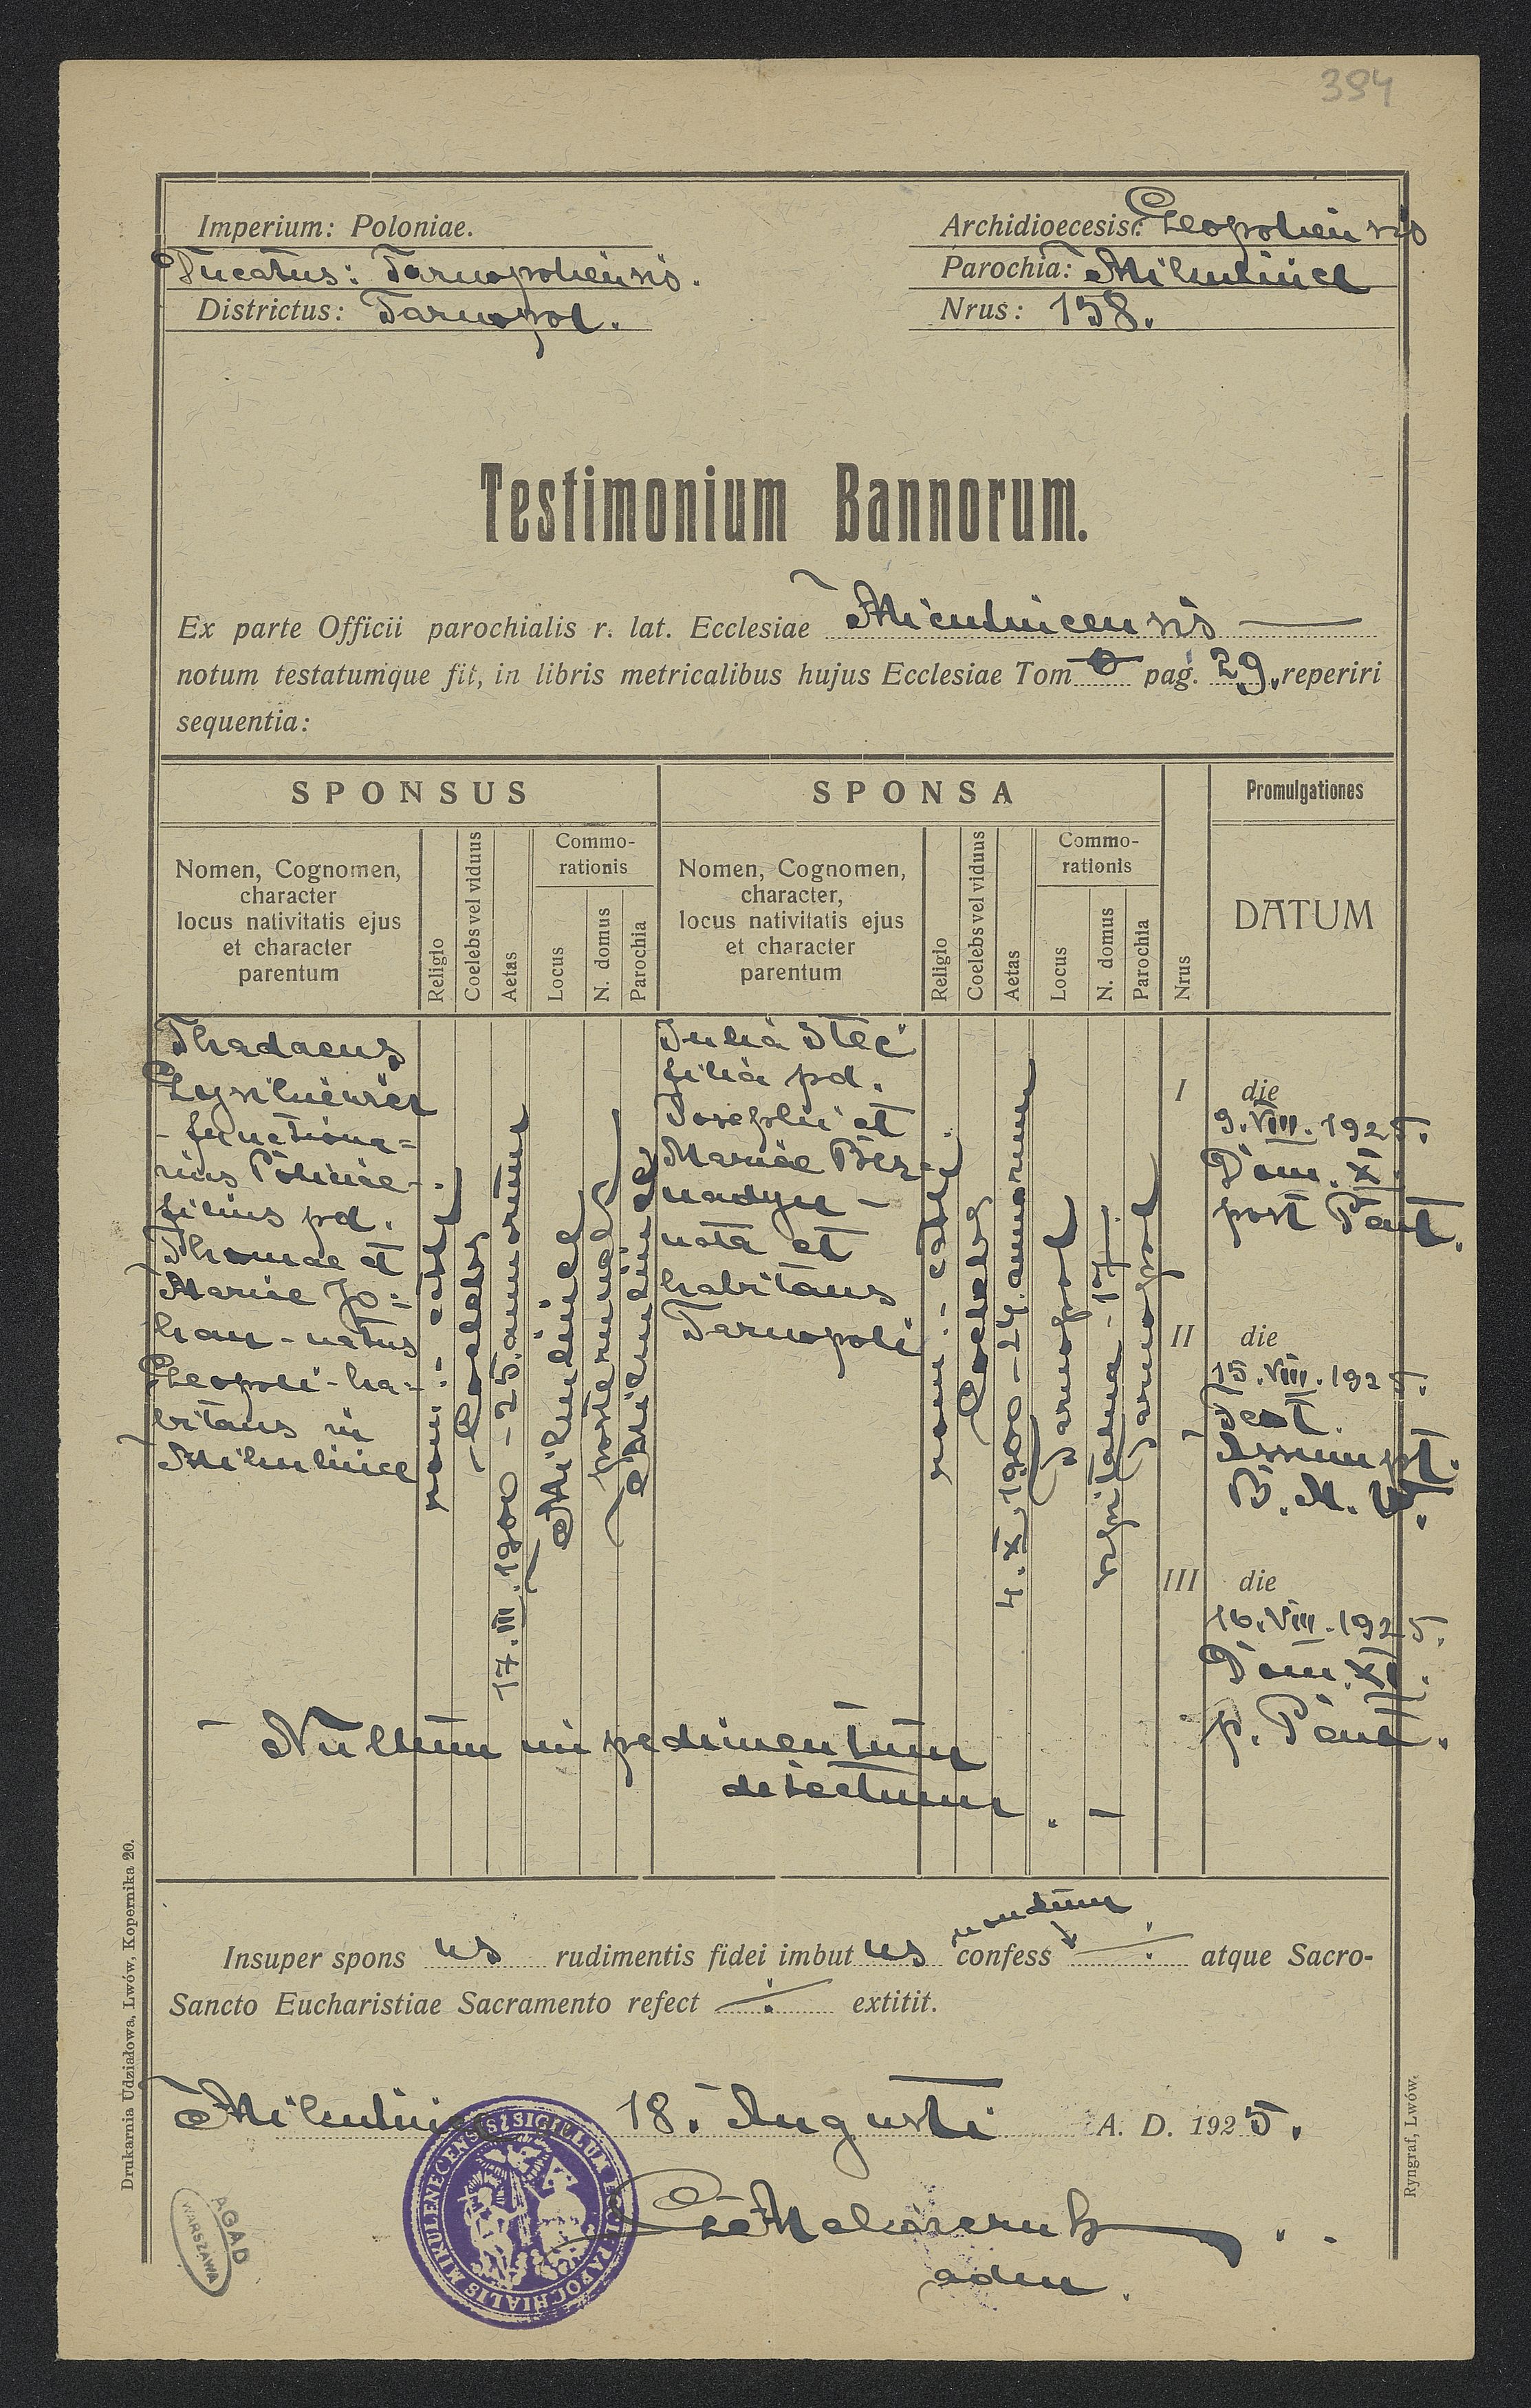 394
Imperium: Poloniae.
Ducatus: Tarnopoliensis.
Districtus: Tarnopol.
Archidioecesis: Leopoliensis
Parochia: Mikulińce
Nrus: 158.
Testimonium Bannorum.
Ex parte Officii parochialis r. lat. Ecclesiae Miculincensis
notum testatumque fit, in libris metricalibus hujus Ecclesiae Tom pag. 29. reperiri
sequentia:
SPONSUS
SPONSA
Promulgationes
Nomen, Cognomen,
character
locus nativitatis ejus
et character
parentum
Religio
Coelebs vel viduus
Aetas
Commo-
rationis
Locus
N. domus
Parochia
Nomen, Cognomen,
character,
locus nativitatis ejus
et character
parentum
Religio
Coelebs vel viduus
Aetas
Commo-
rationis
Locus
N. domus
Parochia
Nrus
DATUM
Thadaeus
- functiona=
rius Policiae -
filius pd.
Thomae et
Mariae Jo=
han - natus
Leopoli - ha=
bitans in
Mikulińce
rom: - cath.
Coelebs
17. III. 1900 - 25. annorum
Mikulińce
Mikulińce
Julia Stec
filia pd.
Josephi et
Mariae Ber=
nadyn -
nata et
habitans
Tarnopoli
rom: - cath.
Coelebs
4. X. 1900 - 24. annorum
Tarnopol
szpitalna - 17
Tarnopol
I die
9. VIII. 1925.
Dom. XI.
post Pent.
II die
15. VIII. 1925.
Fest
Assumpt.
B. M. V.
III die
16. VIII. 1925.
Dom. XI.
p. Pent.
- Nullum impedimentum
detectum. -
nondum
Insuper spons us rudimentis fidei imbut us confess atque Sacro-
Sancto Eucharistiae Sacramento refect extitit.
Mikulińce 18. Augusti A. D. 1925.
adm.
SIGILLUM ECCL. PAROCHIALIS MIKULENECENSIS
AGAD
WARSZAWA
Drukarnia Udziałowa, Lwów, Kopernika 20.
Ryngraf, Lwów.